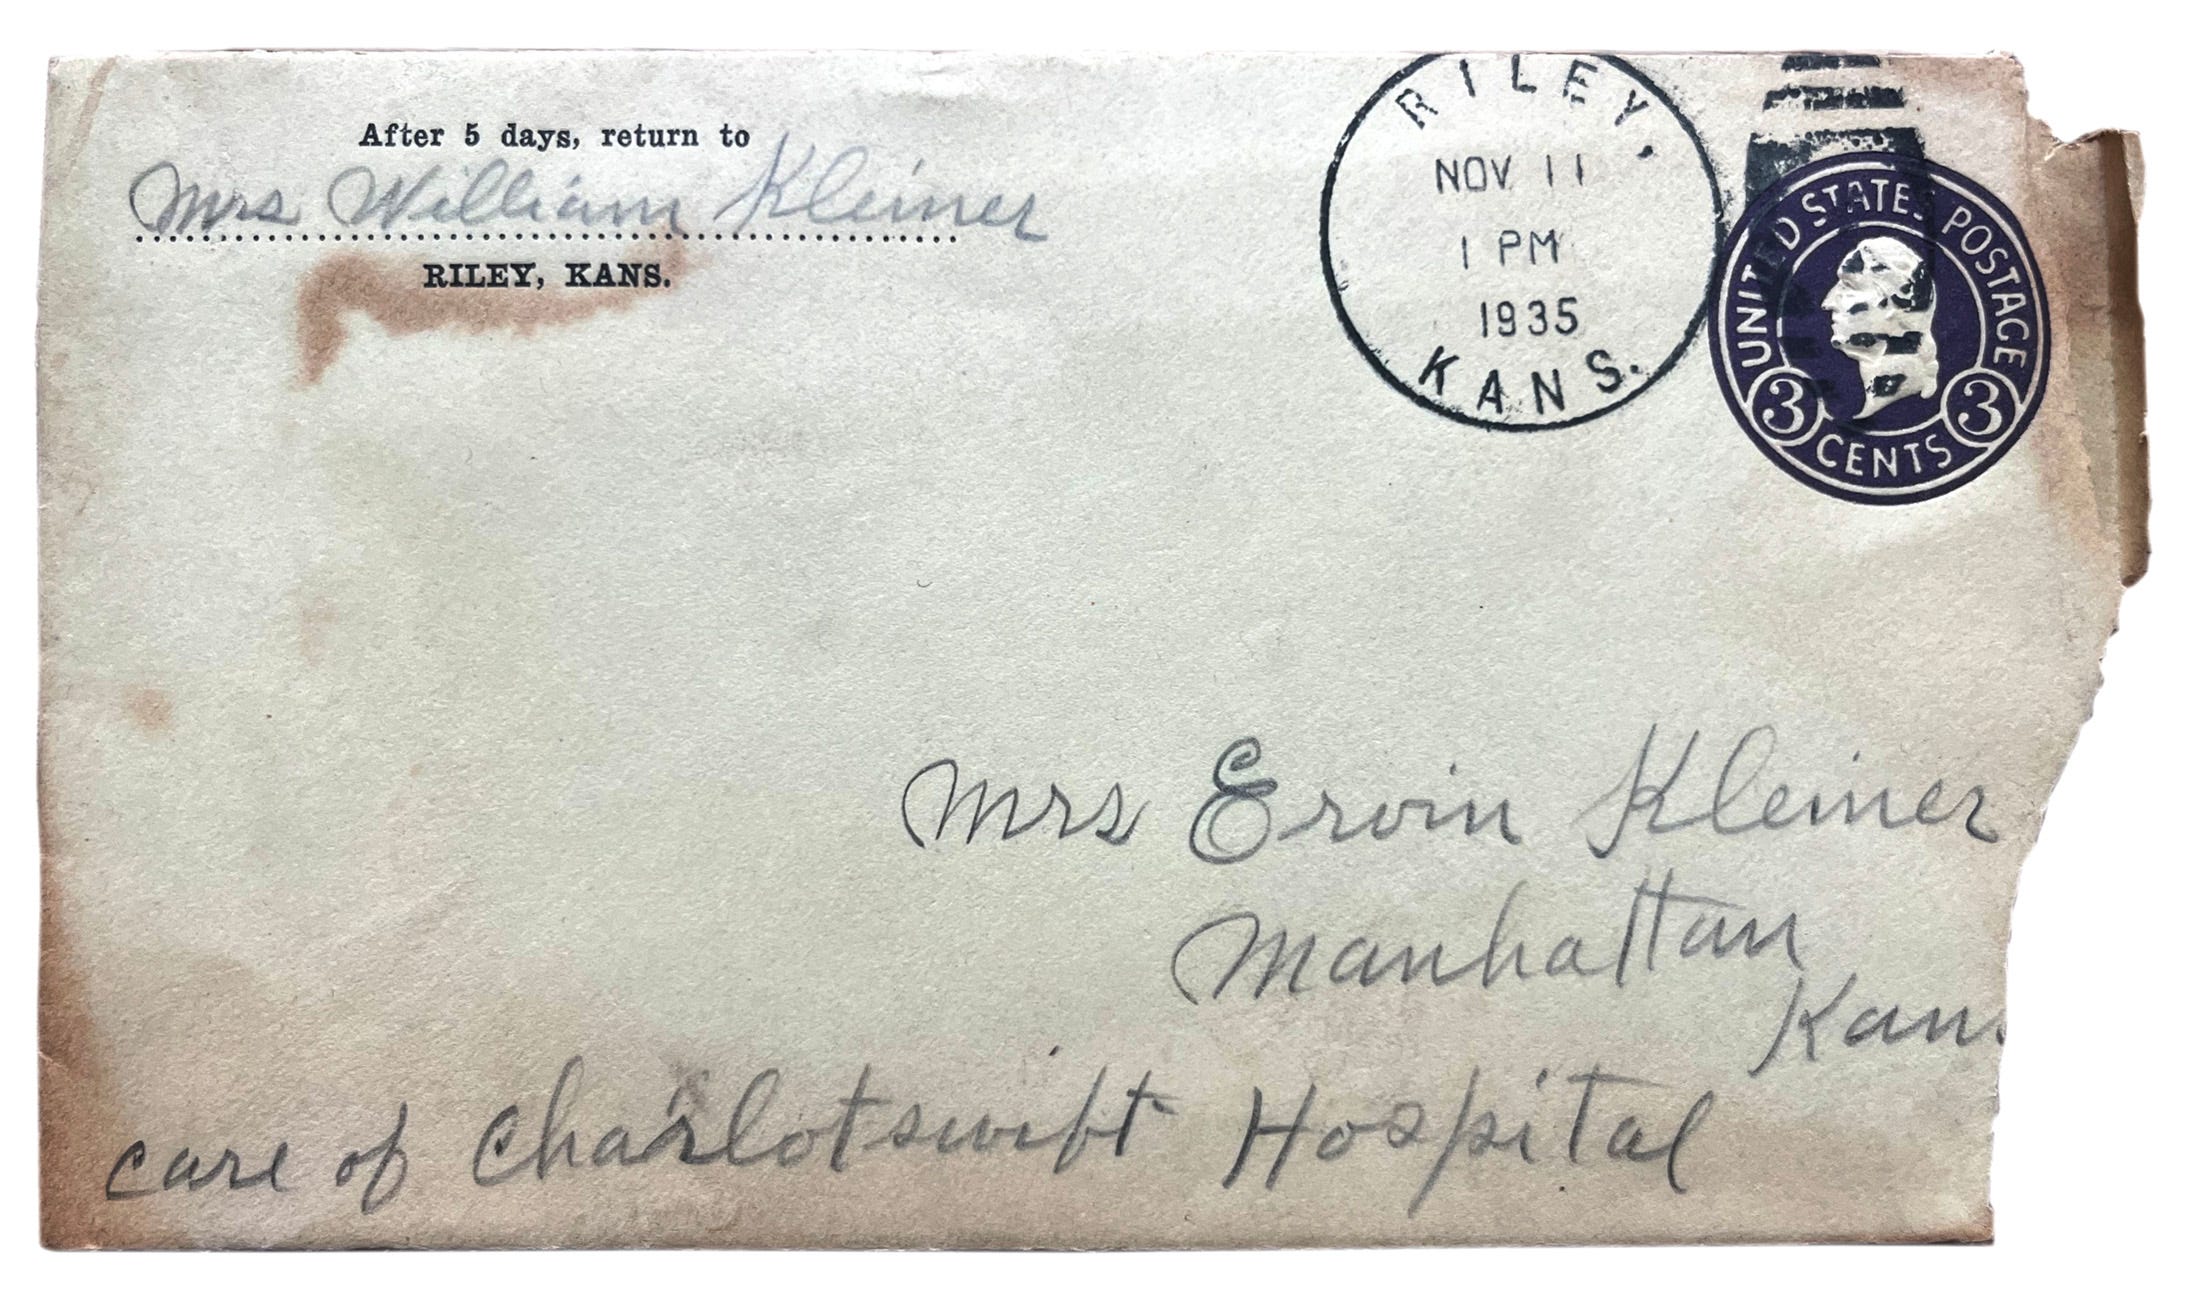 After 5 days, return to
Mrs William Kleiner
RILEY, KANS.
RILEY.
NOV 11
1 PM
1935
KANS.
UNITED STATES POSTAGE
3 CENTS 3
Mrs Ervin Kleiner
Manhattan
Kans.
care of Charlotswift Hospital